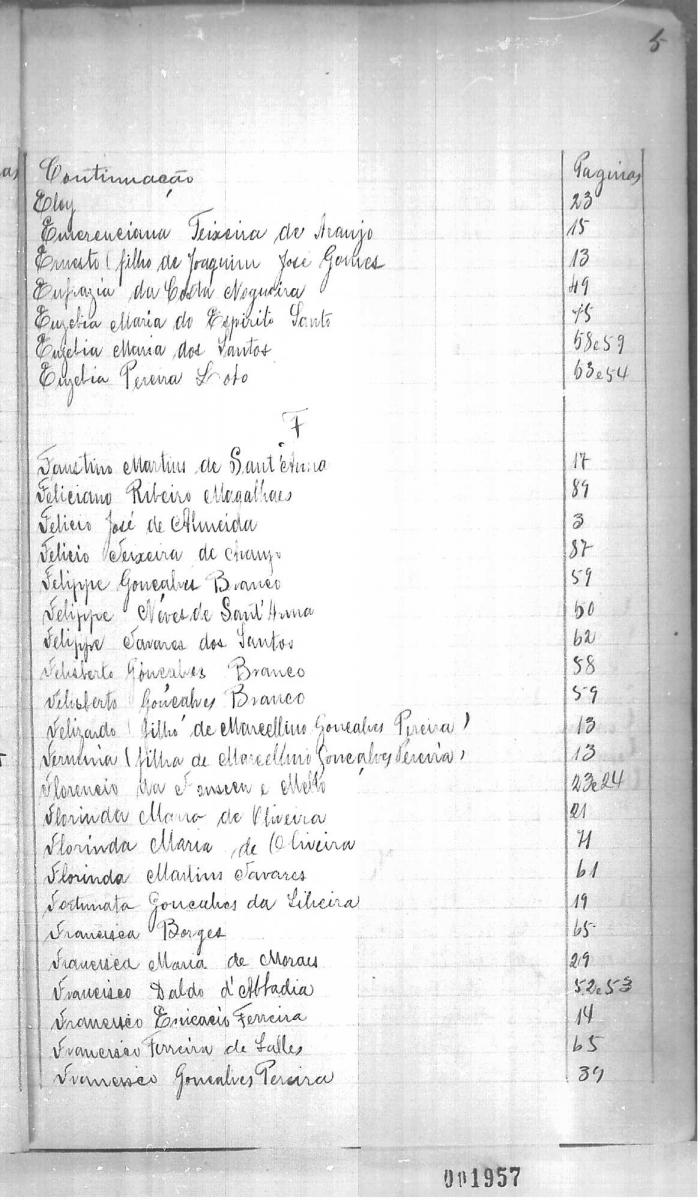 5
Continuação Paginas
Eloy 23
Emerenciana Teixeira de Araujo 15
Ernesto (filho de Joaquim José Gomes 13
Eufrazia da Costa Nogueira 49
Euzebia Maria do Espirito Santo 75
Euzebia Maria dos Santos 58e59
Euzebia Pereira Loto 53e54
F
Faustino Martins de Sant'Anna 17
Feliciano Ribeiro Magalhaes 89
Felicio José de Almeida 3
Felicio Teixeira de Araujo 87
Felippe Gonçalves Branco 59
Felippe Neves de Sant'Anna 50
Felippe Tavares dos Santos 62
Felisberto Gonçalves Branco 58
Felisberto Gonçalves Branco 59
Felizardo (filho de Marcellino Gonçalves Pereira) 13
Firminia (filha de Marcellino Gonçalves Pereira) 13
Florencio da Fonseca e Mello 23e24
Florinda Maria de Oliveira 21
Florinda Maria de Oliveira 71
Florinda Martins Tavares 61
Fortunata Goncalves da Silveira 19
Francisca Borges 65
Francisca Maria de Moraes 29
Francisco Daldo d'Abbadia 52e53
Francisco Ferreira 14
Francisco Ferreira de Salles 65
Francisco Gonçalves Pereira 39
001957